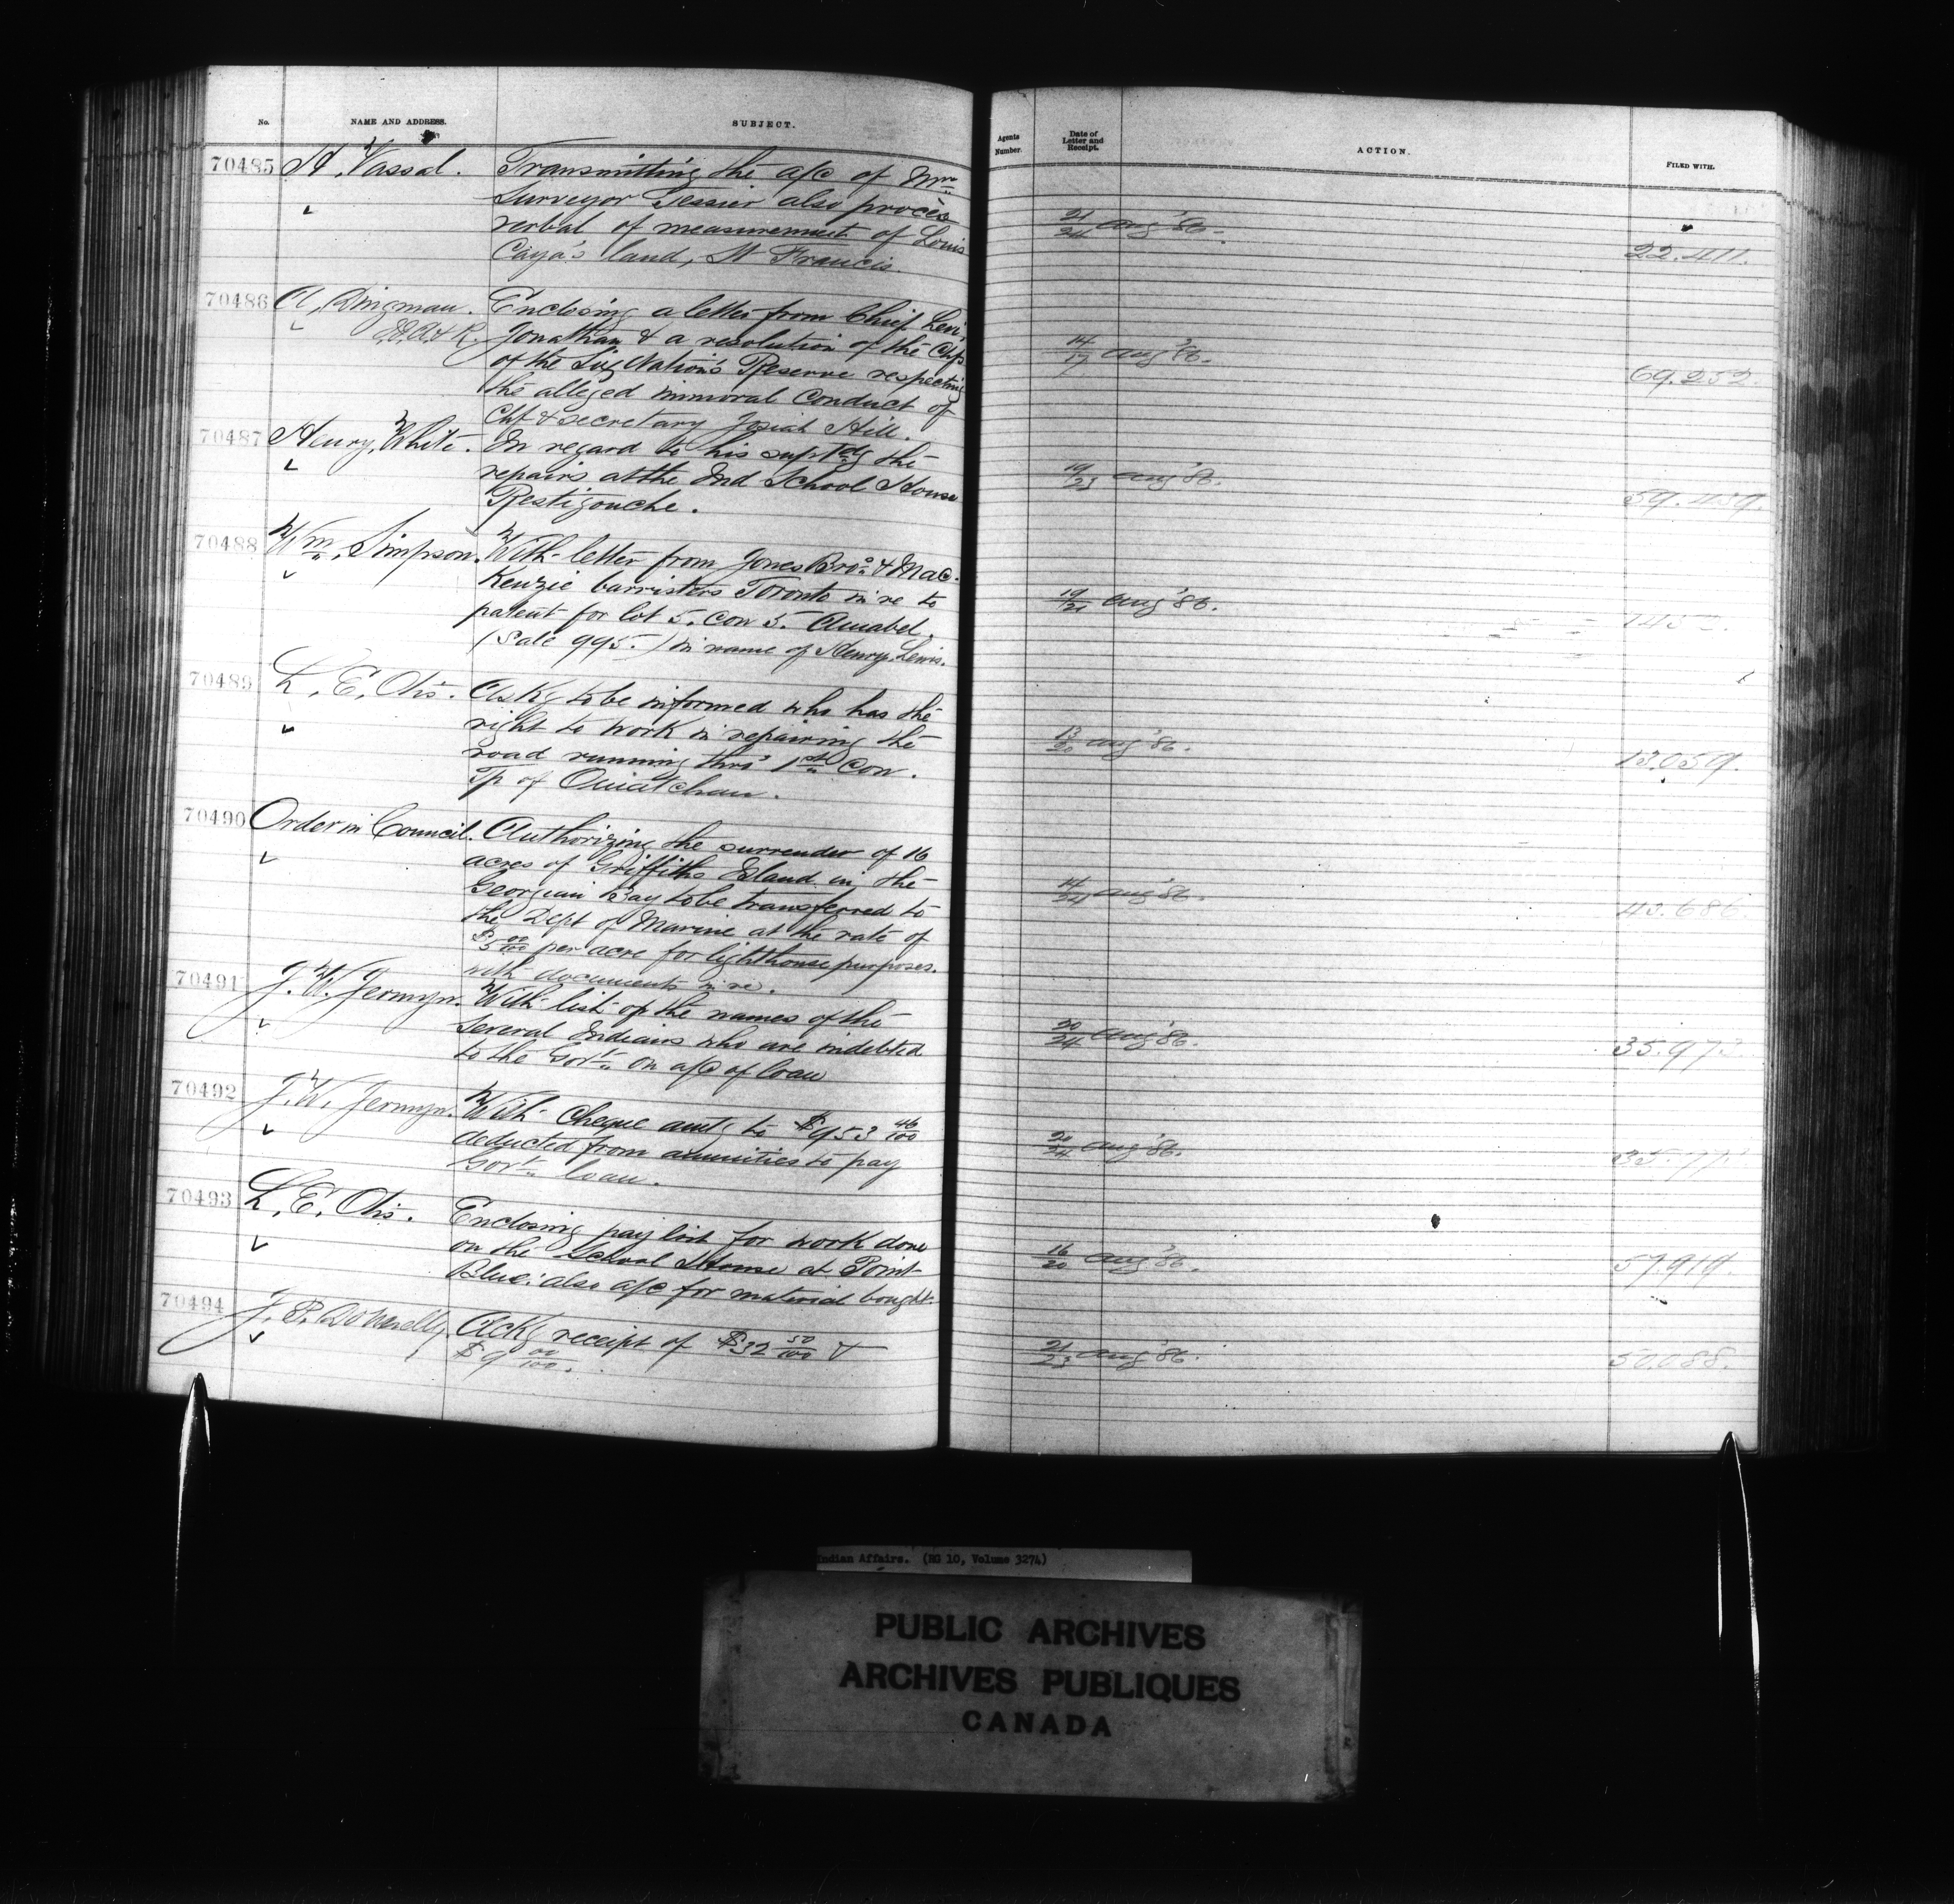 No.
NAME AND ADDRESS.
SUBJECT.
70485 H. Vassal. Transmitting the a/c of Mr.
Surveyor Tessier also procès
verbal of measurement of Louis
Caya's land, St Francis.
70486 A. Dingman. Enclosing a letter from Chief Levi
Jonathan & a resolution of the Chfs
of the Six Nation's Reserve respecting
the alleged immoral conduct of
Chf & secretary Josiah Hill.
70487 Henry White. In regard to his suptdg the
repairs at the Ind School House
Restigouche.
70488 Wm. Simpson. With letter from Jones Bros. & Mac-
Kenzie barristers Toronto in re to
patent for lot 5. con 5. Amabel.
(Sale 995.) in name of Henry Lewis.
70489 L. E. Otis. Askg to be informed who has the
right to work in repairing the
road running thro' 1st con.
Tp of Ouiatchan.
70490 Order in Council. Authorizing the surrender of 16
acres of Griffiths Island in the
Georgian Bay to be transferred to
the Dept of Marine at the rate of
$5 00/100 per acre for lighthouse purposes.
with documents in re.
70491 J. W. Jermyn. With list of the names of the
several Indians who are indebted
to the Govt. on a/c of loan
70492 J. W. Jermyn. With Cheque amtg to $953 46/100
deducted from annuities to pay
Govt. loan.
70493 L. E. Otis. Enclosing pay list for work done
on the School House at Point
Blue: also a/c for material bought.
70494 J. P. Donnelly. Ackg receipt of $32 50/100 &
$9 00/100.
Agents
Number.
Date of
Letter and
Receipt.
ACTION.
FILED WITH.
21/24 Aug '86.
22.411.
14/17 Aug '86.
69.252.
19/23 Aug '86.
59.459.
19/21 Aug '86.
13/20 Aug '86.
13.059.
14/24 Aug '86.
43.686.
20/24 Aug '86.
35.973.
20/24 Aug '86.
16/20 Aug '86.
57919.
21/23 Aug '86.
50.088.
Indian Affairs. (RG 10, Volume 3274)
PUBLIC ARCHIVES
ARCHIVES PUBLIQUES
CANADA